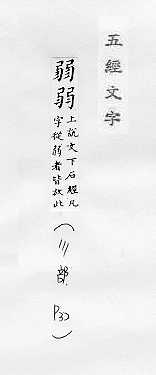 五經文字
弱弱
上說文下石經凡
字從弱者皆放此
(彡部.